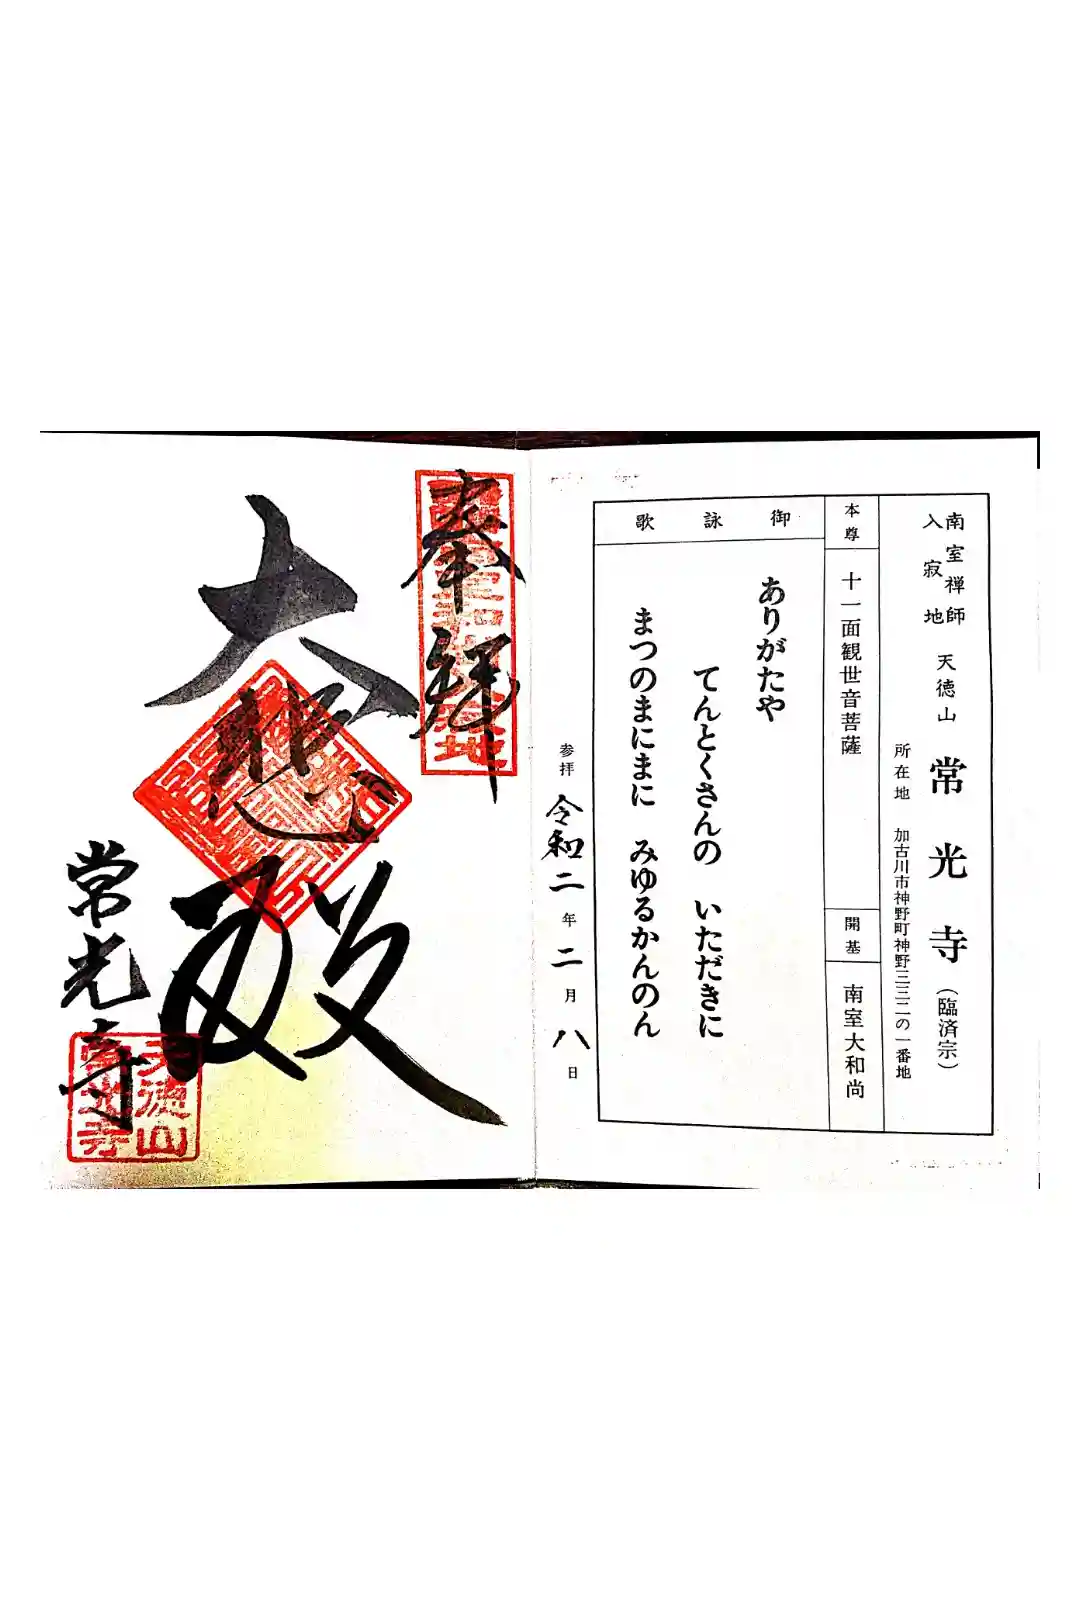 南室禅師
入寂地
天徳山 常光寺(臨済宗)
所在地 加古川市神野町神野三三二の一番地
本尊
十一面観世音菩薩
開基
南室大和尚
御詠歌
ありがたや
てんとくさんの いただきに
まつのまにまに みゆるかんのん
参拝 令和二年二月八日
奉拝
大悲殿
常光寺
天徳山
常光寺